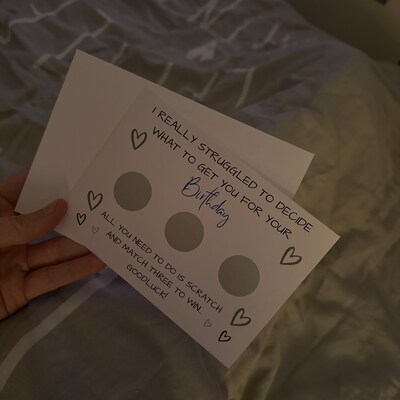 I REALLY STRUGGLED TO DECIDE
WHAT TO GET YOU FOR YOUR
Birthday
ALL YOU NEED TO DO IS SCRATCH
AND MATCH THREE TO WIN.
GOODLUCK!